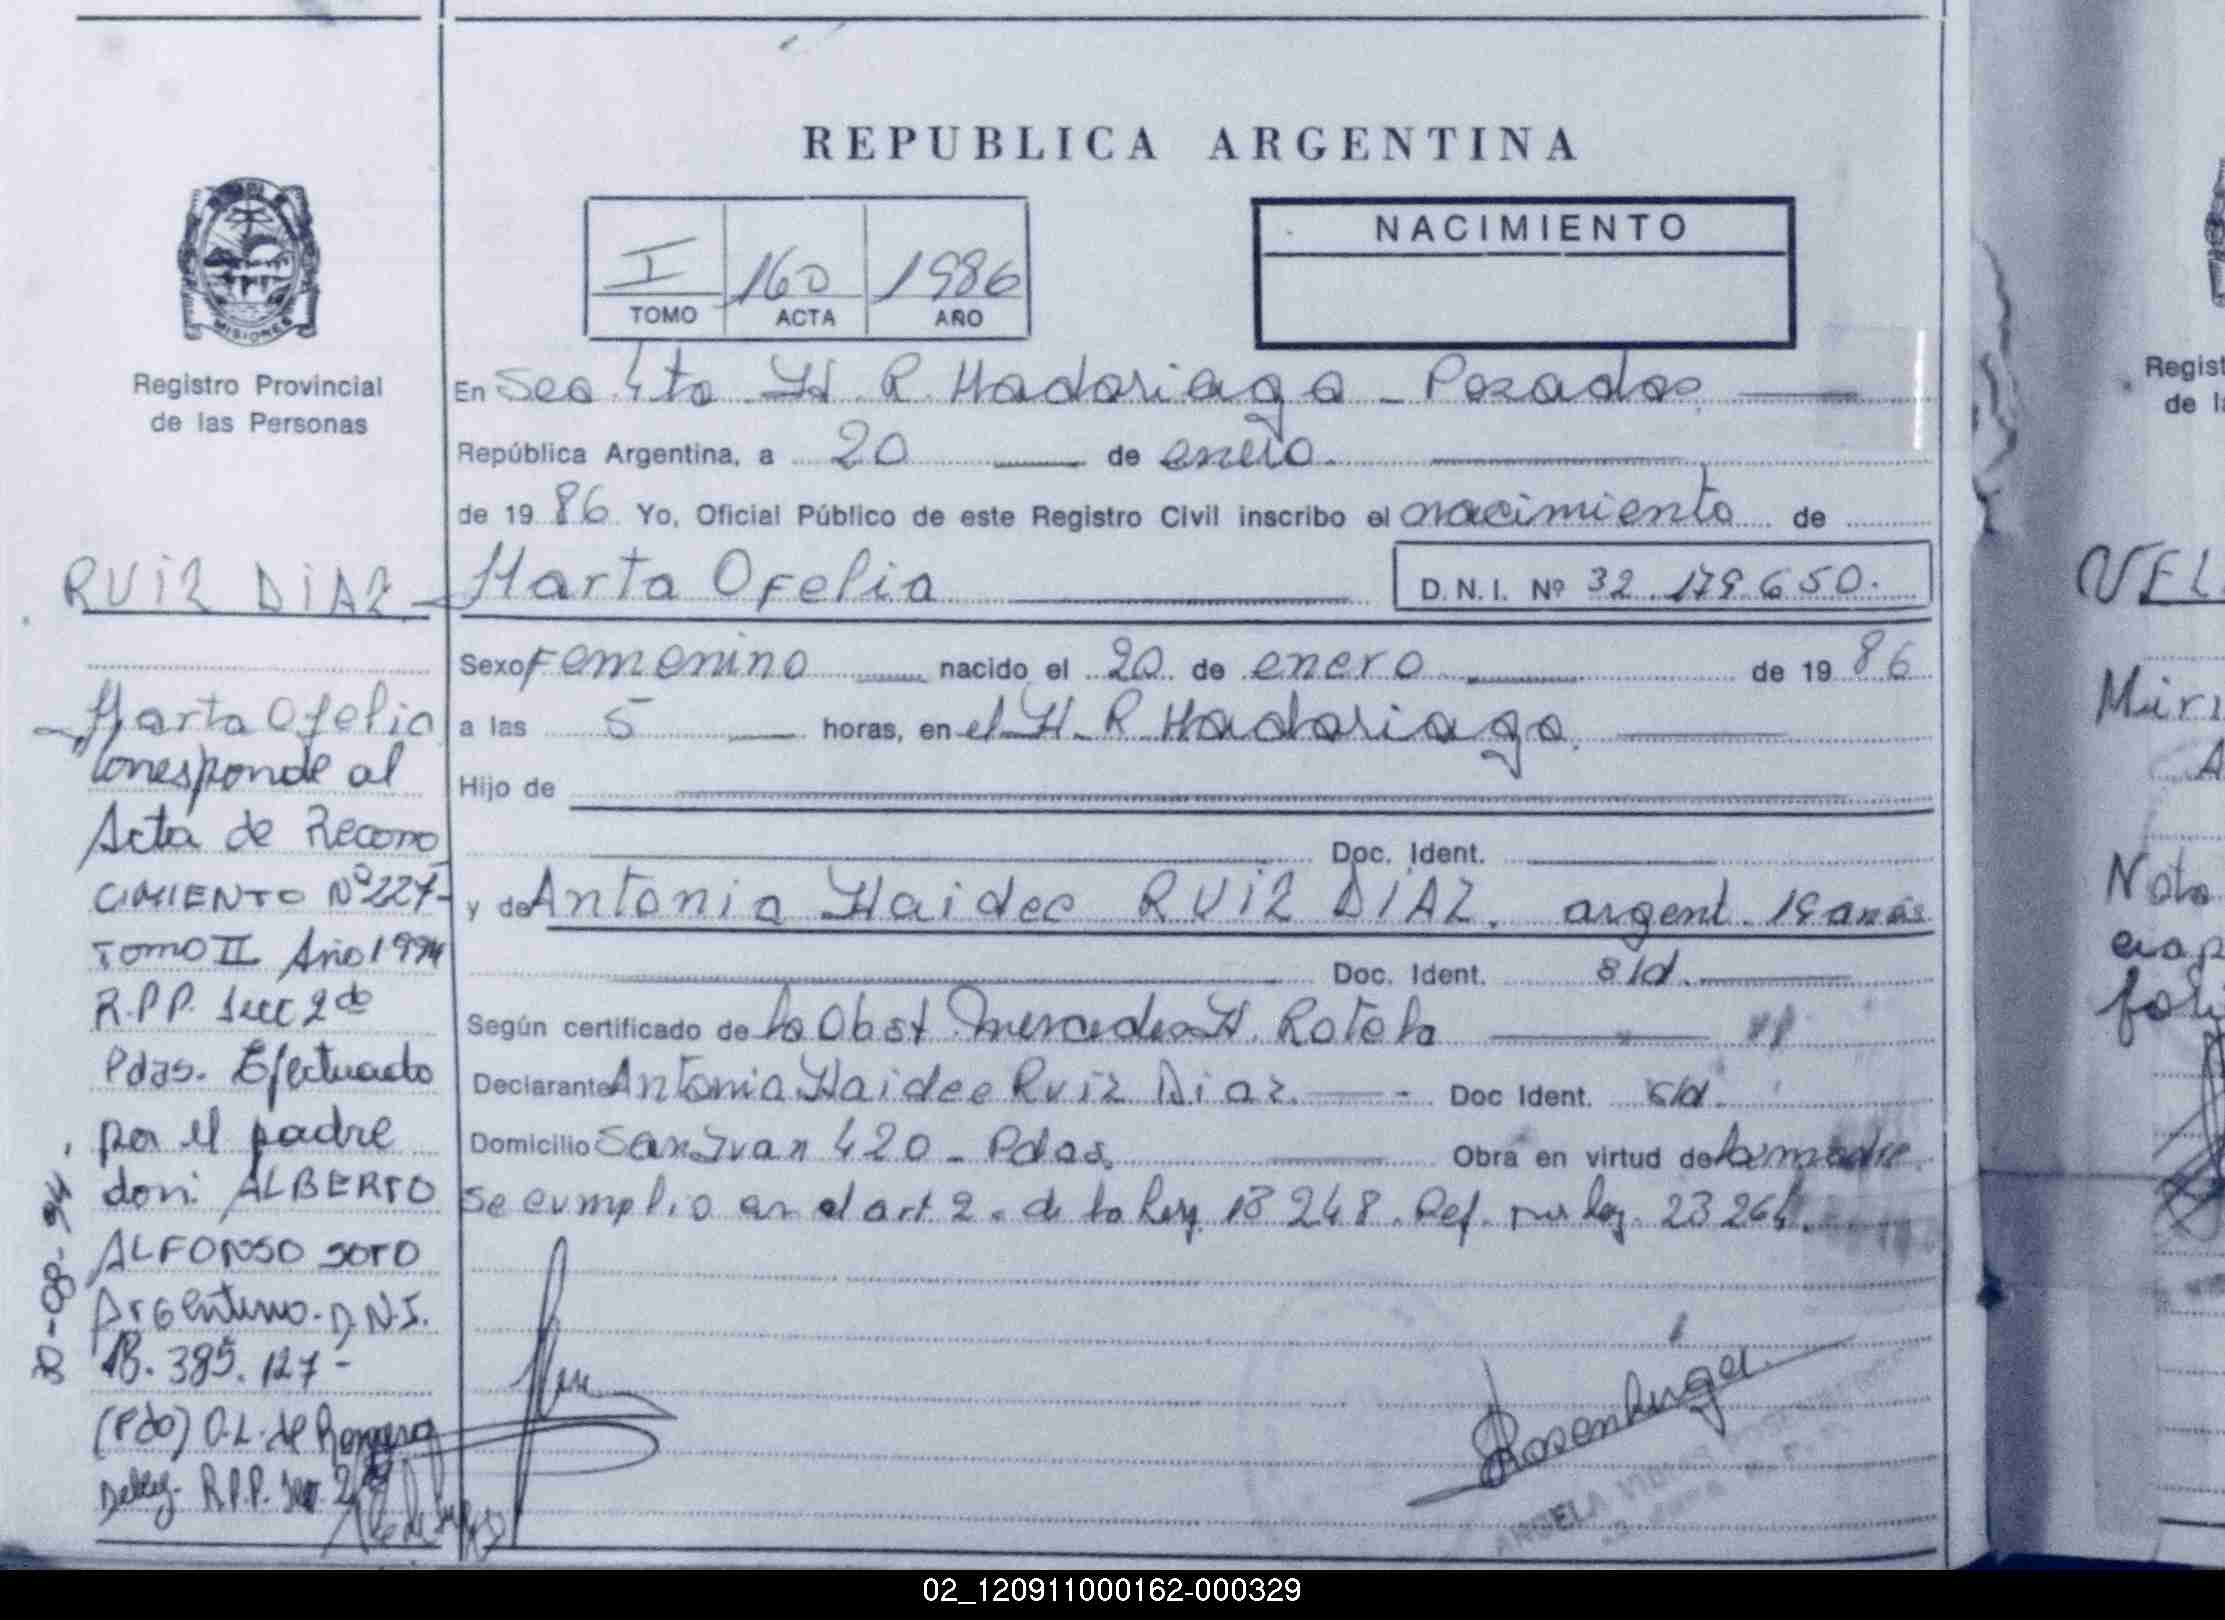 REPUBLICA ARGENTINA
I 160 1986
TOMO ACTA AÑO
NACIMIENTO
MISIONES
Registro Provincial
de las Personas
En Sec 4ta H. R. Madariaga - Posadas
República Argentina, a 20 de enero
de 19 86 Yo, Oficial Público de este Registro Civil inscribo el nacimiento de
RUIZ DIAZ - Marta Ofelia D.N.I. Nº 32.179.650.
Sexo Femenino nacido el 20 de enero de 19 86
a las 5 horas, en el H. R. Madariaga.
Hijo de
Doc. Ident.
y de Antonia Haidee RUIZ DIAZ. argent. 19 anos
Doc. Ident. s/d.
Según certificado de la Obst. Mercedes H. Rotela
Declarante Antonia Haidee Ruiz Diaz. Doc Ident. s/d.
Domicilio San Juan 420 - Pdas. Obra en virtud de la madre
Se cumplio en el art 2. de la ley 18 248. Ref. por ley. 23 264.
Marta Ofelia
Corresponde al
Acta de Recono
CIMIENTO Nº 227-
TOMO II Año 1994
R.P.P. Secc 2da
Pdas. Efectuado
por el padre
don: ALBERTO
ALFONSO SOTO
Argentino. D.N.I.
18.385.127-
(Fdo) O.L. de Romero
Deleg. R.P.P. Sec 2
-08-94
Rosenberger
ANGELA
Regist
de la
VEL
Mir
Nota
fol
02_120911000162-000329